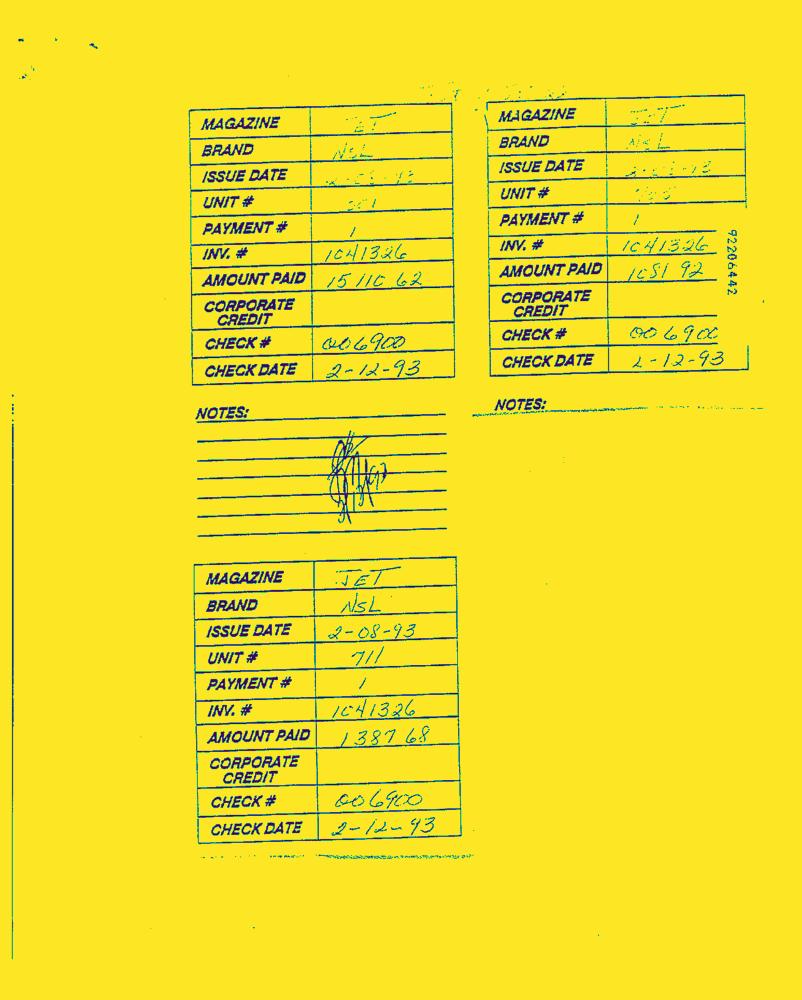 MAGAZINE JET
BRAND NSL
ISSUE DATE
UNIT #
PAYMENT # 1
INV. # 1041326
AMOUNT PAID 15 110 62
CORPORATE
CREDIT
CHECK # 006900
CHECK DATE 2-12-93
NOTES:
MAGAZINE JET
BRAND NSL
ISSUE DATE
UNIT #
PAYMENT # 1
INV. # 1041326
AMOUNT PAID 1081 92
CORPORATE
CREDIT
CHECK # 006900
CHECK DATE 2-12-93
NOTES:
92206442
MAGAZINE JET
BRAND NSL
ISSUE DATE 2-08-93
UNIT # 711
PAYMENT # 1
INV. # 1041326
AMOUNT PAID 1387 68
CORPORATE
CREDIT
CHECK # 006900
CHECK DATE 2-12-93